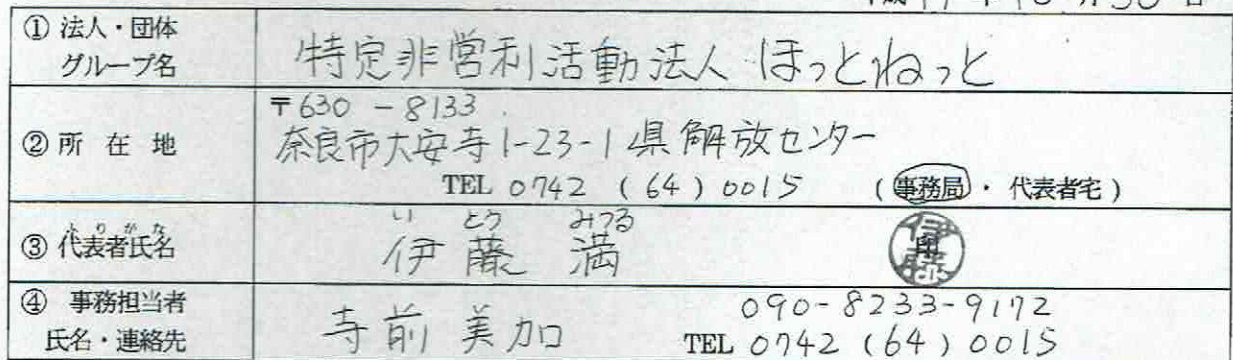 ① 法人・団体
グループ名
特定非営利活動法人 ほっとねっと
② 所在地
〒630-8133
奈良市大安寺1-23-1 県解放センター
TEL 0742 (64) 0015 (事務局・代表者宅)
ふりがな
③ 代表者氏名
いとう みつる
伊藤 満
印
伊藤
④ 事務担当者
氏名・連絡先
寺前 美加
090-8233-9172
TEL 0742 (64) 0015